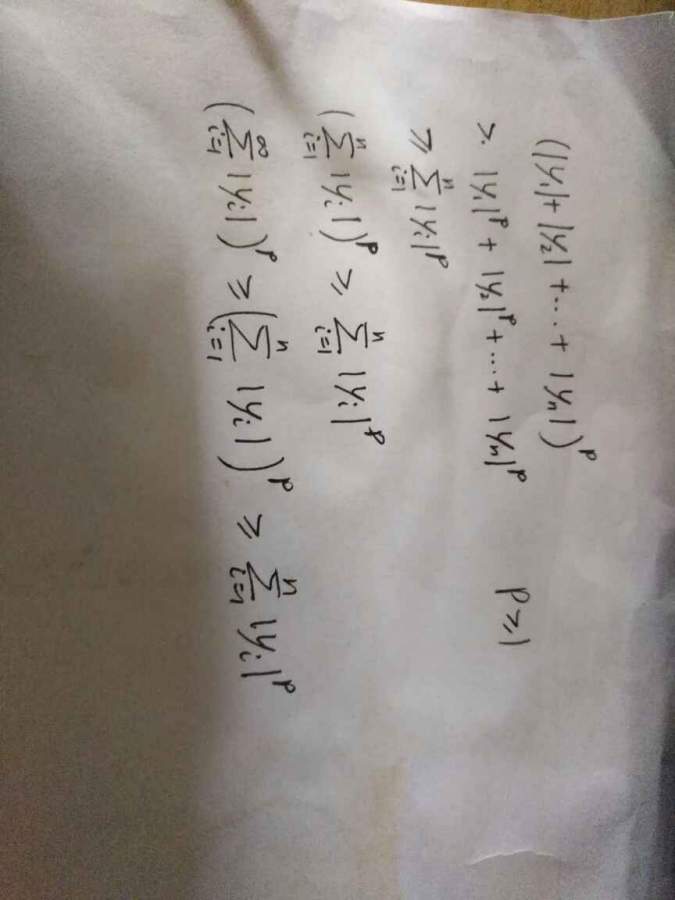 (|y₁| + |y₂| + ... + |yₙ|)ᵖ
≥ |y₁|ᵖ + |y₂|ᵖ + ... + |yₙ|ᵖ p ≥ 1
≥ ∑ᵢ₌₁ⁿ |yᵢ|ᵖ
(∑ᵢ₌₁ⁿ |yᵢ|)ᵖ ≥ ∑ᵢ₌₁ⁿ |yᵢ|ᵖ
(∑ᵢ₌₁^∞ |yᵢ|)ᵖ ≥ (∑ᵢ₌₁ⁿ |yᵢ|)ᵖ ≥ ∑ᵢ₌₁ⁿ |yᵢ|ᵖ